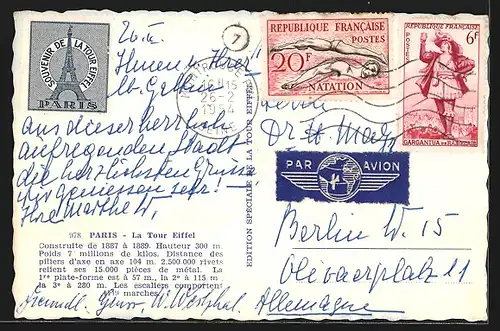 SOUVENIR DE LA TOUR EIFFEL
PARIS
7
RÉPUBLIQUE FRANÇAISE
POSTES
20F
NATATION
REPUBLIQUE FRANÇAISE
POSTES
6F
GARGANTUA DE RABELAIS
26-2
Ihnen u. Ihrer
lb. Gattin
aus dieser herrlich
aufregenden Stadt
die herzlichsten Grüsse
Wir geniessen sehr!
Ihre Marthe W.
978 PARIS - La Tour Eiffel
Construite de 1887 à 1889. Hauteur 300 m.
Poids 7 millions de kilos. Distance des
piliers d'axe en axe 104 m. 2.500.000 rivets
relient ses 15.000 pièces de métal. La
1re plate-forme est à 57 m., la 2e à 115 m
la 3e à 280 m. Les escaliers comportent
marches.
Freundl. Grüsse W. Westphal.
EDITION SPECIALE DE LA TOUR EIFFEL
Dr
PAR AVION
Berlin W. 15
Olivaerplatz 11
Allemagne